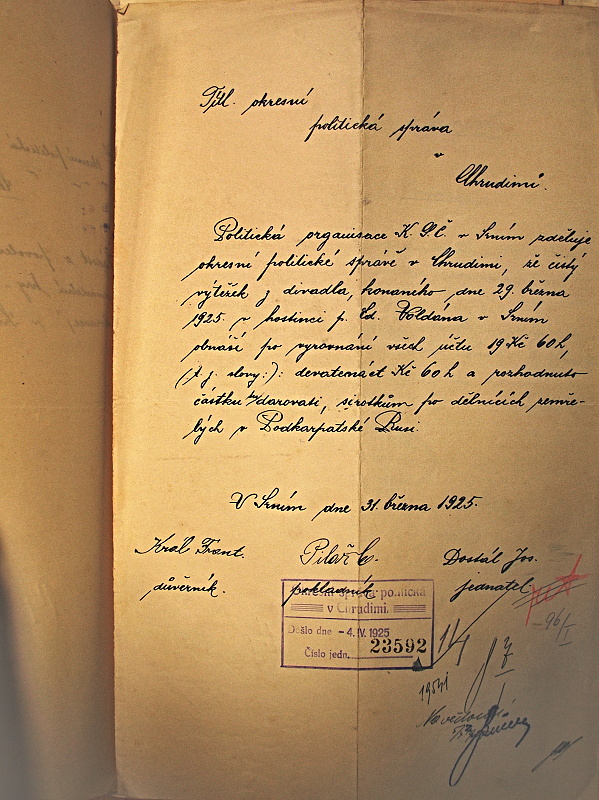 Titl. okresní
politická správa
v
Chrudimi.
Politická organisace K.P.Č. v Srním zděluje
okresní politické správě v Chrudimi, že čistý
výtěžek z divadla, konaného dne 29. března
1925 v hostinci p. Ed. Voldána v Srním
obnáší po vyrovnání všech účtů 19 Kč 60 h,
(t. j. slovy:): devatenáct Kč 60 h a rozhodnuto
částku tu darovati, sirotkům po dělnících zemře-
lých v Podkarpatské Rusi.
V Srním dne 31. března 1925.
Král Frant. Pilař C. Dostál Jos.
důvěrník. pokladník jednatel
Okresní správa politická
v Chrudimi.
Došlo dne - 4. IV. 1925
Číslo jedn. 23592